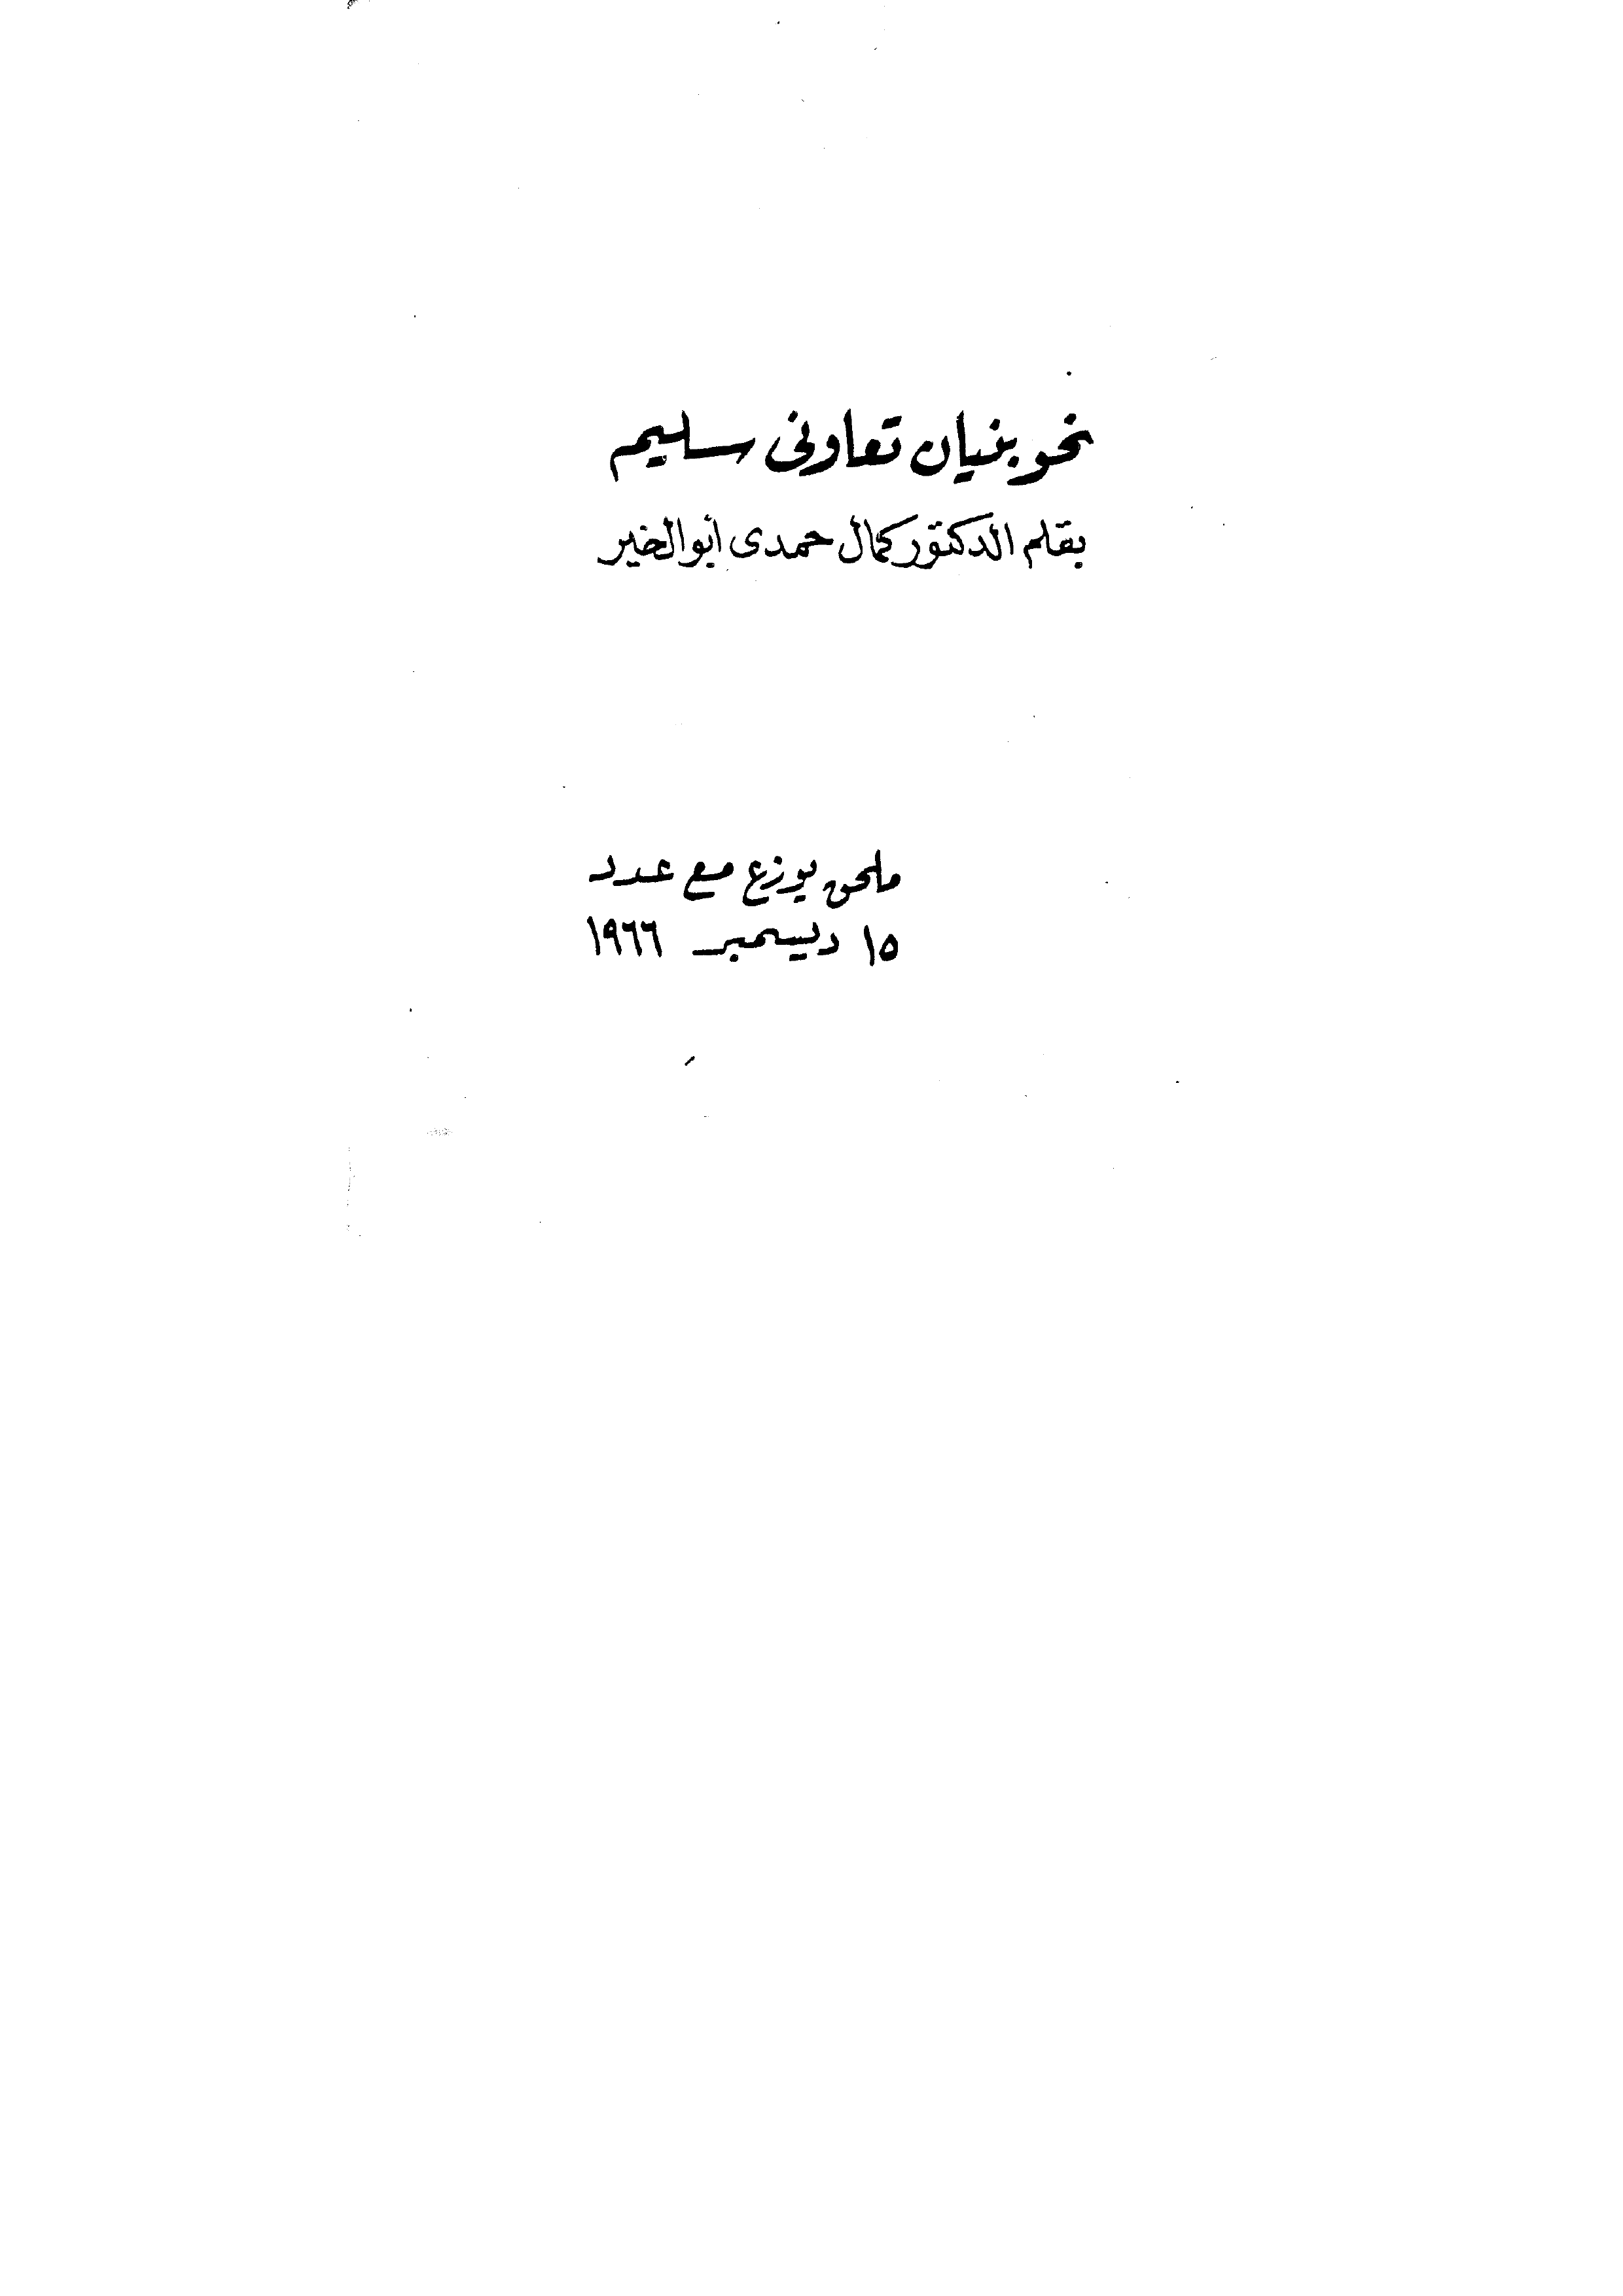 نحو بنيان تعاونى سليم
بقلم الدكتور كمال حمدى أبو الخير
ملحق يوزع مع عدد
١٥ ديسمبر ١٩٦٦